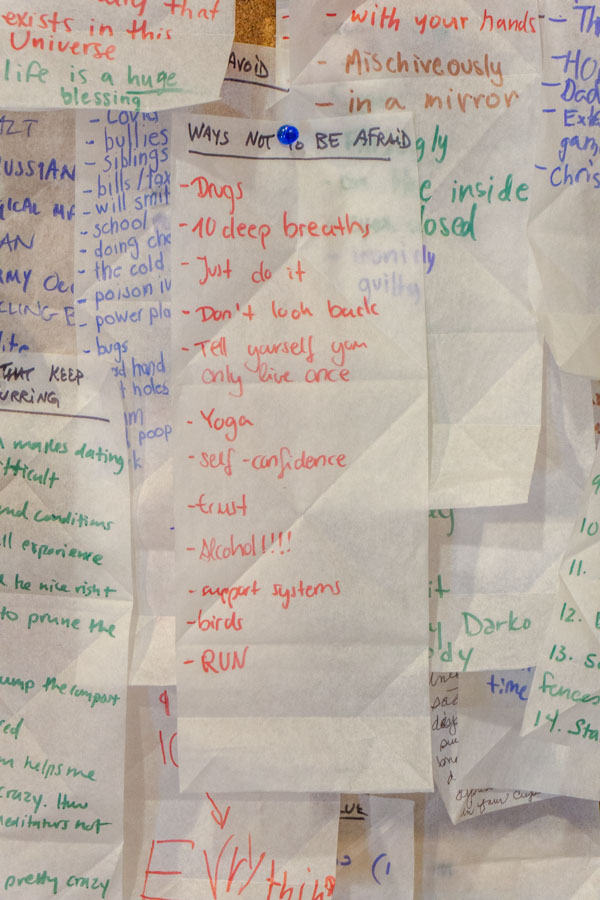 exists in this
Universe
life is a huge
blessing
AVOID
- with your hands
- Mischiveously
- in a mirror
- bullies
- siblings
- bills/tax
- will smit
- school
- doing che
- the cold
- poison iv
- power pla
- bugs
WAYS NOT TO BE AFRAID
- Drugs
- 10 deep breaths
- Just do it
- Don't look back
- Tell yourself you
only live once
- Yoga
- self-confidence
- trust
- Alcohol!!!!
- support systems
- birds
- RUN
gly
e inside
losed
guilty
THAT KEEP
URRING
makes dating
conditions
ll experience
be nice right
to prune the
ump the compost
helps me
crazy. How
meditators not
pretty crazy
hand
holes
poop
Evrything
it
y Darko
dy
time
10
11.
12.
13. S
fences
14. Sta